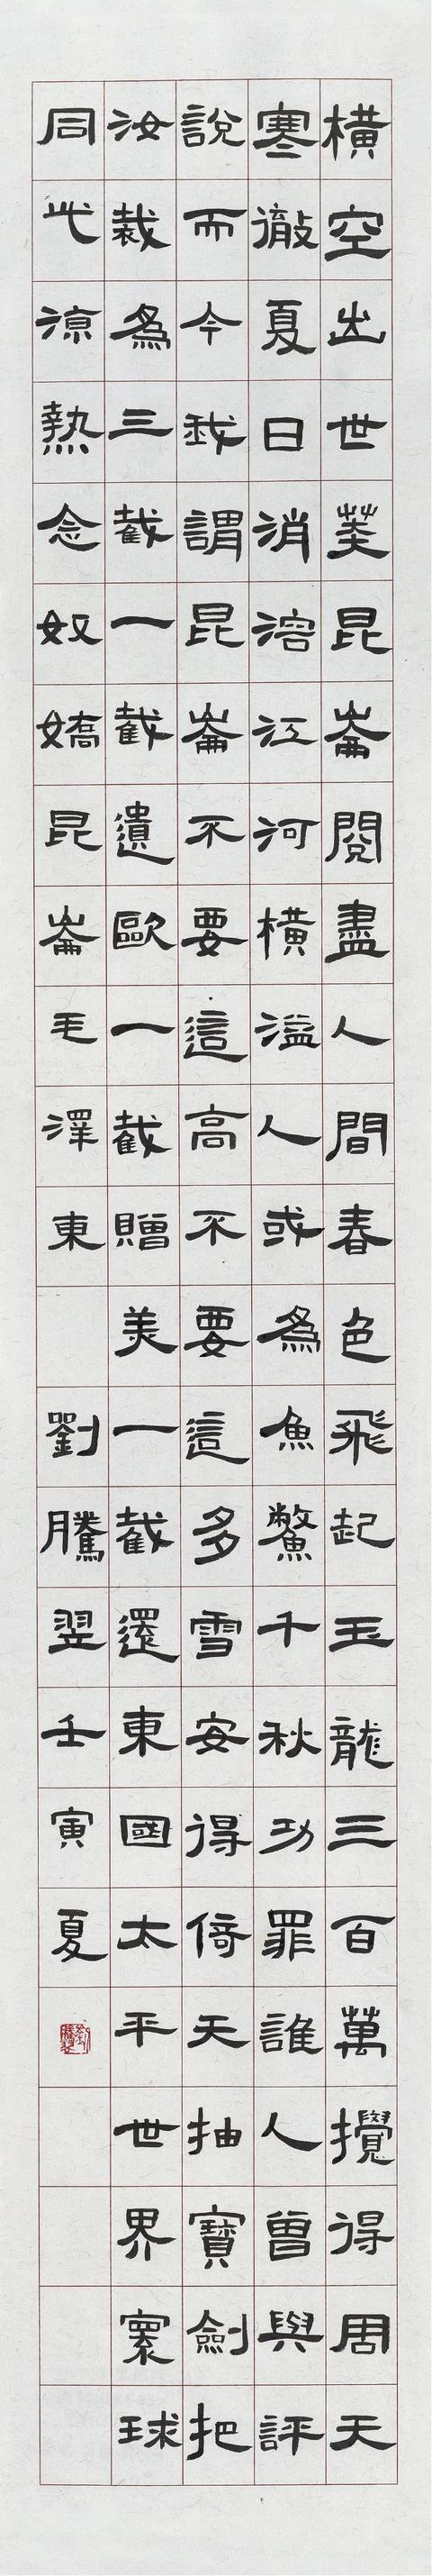 橫空出世莽昆崙閱盡人間春色飛起玉龍三百萬攪得周天
寒徹夏日消溶江河橫溢人或為魚鱉千秋功罪誰人曾與評
說而今我謂昆崙不要這高不要這多雪安得倚天抽寶劍把
汝裁為三截一截遺歐一截贈美一截還東國太平世界寰球
同此涼熱念奴嬌昆崙毛澤東 劉騰翌壬寅夏